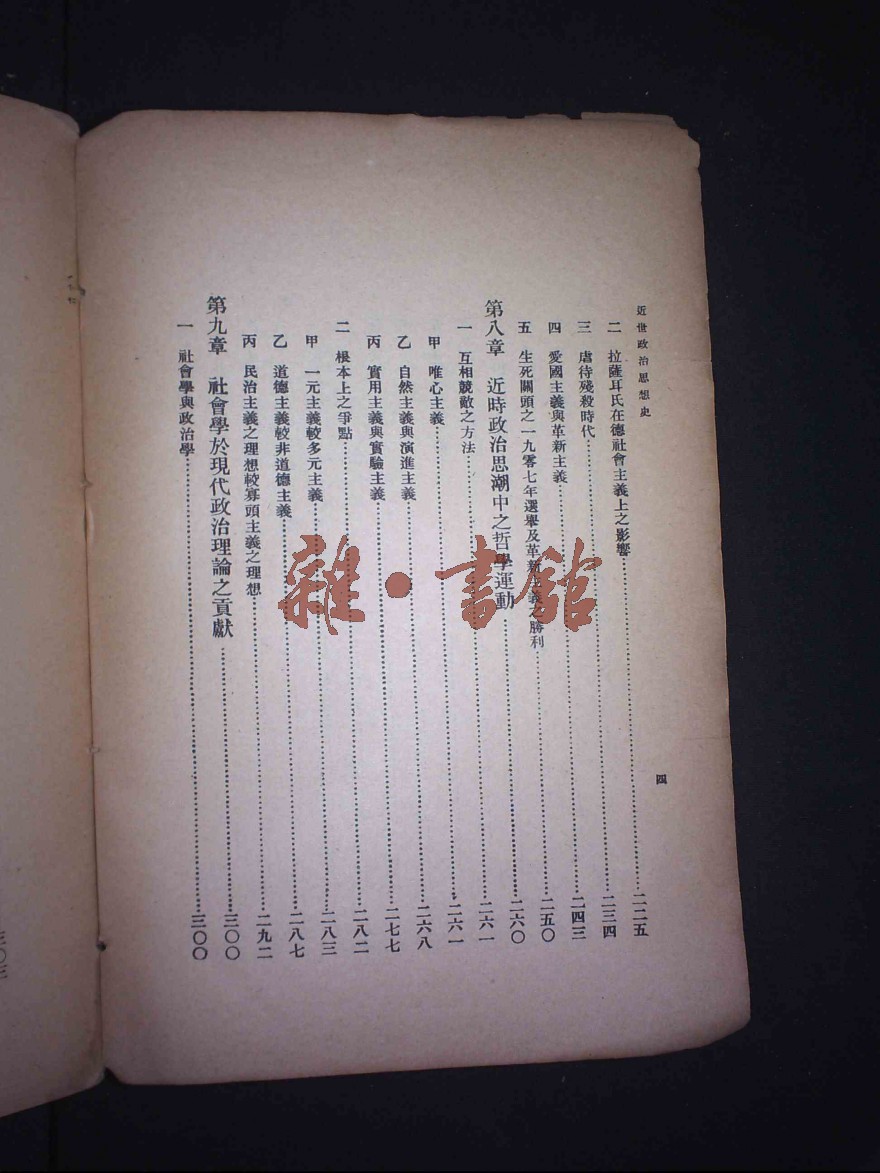 近世政治思想史 四
二 拉薩耳氏在德社會主義上之影響……二二五
三 虐待殘殺時代……二三四
四 愛國主義與革新主義……二四三
五 生死關頭之一九零七年選舉及革新主義之勝利……二五〇
第八章 近時政治思潮中之哲學運動……二六〇
一 互相競敵之方法……二六一
甲 唯心主義……二六一
乙 自然主義與演進主義……二六八
丙 實用主義與實驗主義……二七七
二 根本上之爭點……二八二
甲 一元主義較多元主義……二八三
乙 道德主義較非道德主義……二八七
丙 民治主義之理想較寡頭主義之理想……二九二
第九章 社會學於現代政治理論之貢獻……三〇〇
一 社會學與政治學……三〇〇
雜·書館